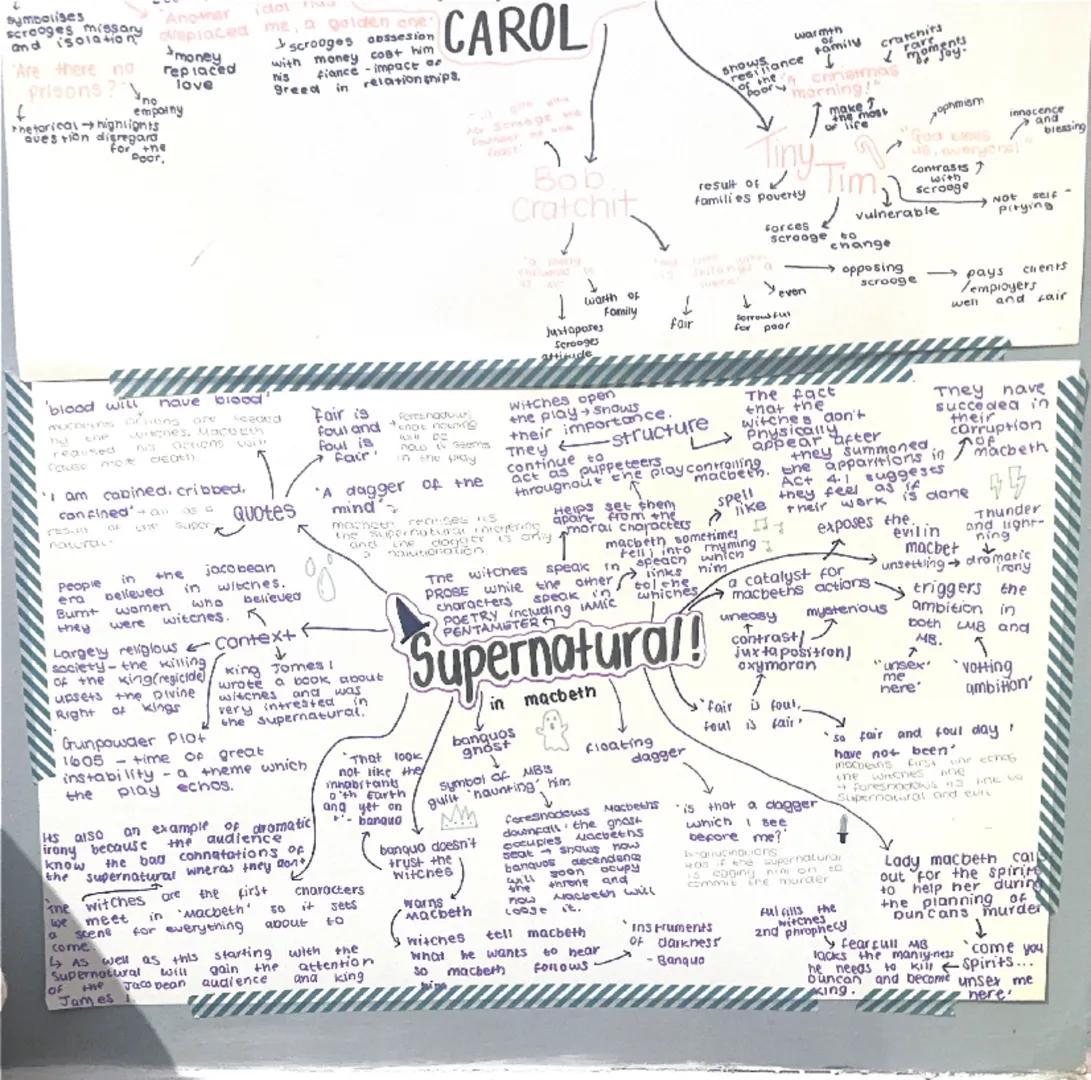 symbolises
scrooges missary
and isolation
'Another idol has
displaced me, a golden one'
money
replaced
love
scrooges obssesion
with money cost him
his fiance - impact of
greed in relationships.
CAROL
'Are there no
prisons?'
no
empathy
rhetorical → highlights
question disregard
for the
poor.
Bob
Cratchit
warth of
Family
juxtaposes
scrooges
attitude
fair
even
sorrowful
for poor
opposing
scrooge
pays clients
/employers
well and fair
Tiny
Tim
shows
resiliance
of the
poor
warmth
of
family
cratchits
rare
moments
of joy.
'A christmas
morning!'
make
the most
of life
opmism
innocence
and
blessing
"God bless
us, everyone!"
contrasts
with
scrooge
Not self-
pitying
vulnerable
result of
families poverty
forces
scrooge to
change
Supernatural!
in macbeth
quotes
'blood will have blood'
macbeths actions are
by the witches. Macbeth
realises his actions will
cause more death.
'Fair is
foul and
foul is
fair'
in the play
'I am cabined, cribbed,
confined' → all as a
result of the super
natural.
'A dagger of the
mind'
the supernatural
and the dagger is only
a halucination
structure
witches open
the play → shows
their importance.
They
continue to
act as puppeteers
throughout the play controlling
macbeth.
The fact
that the
witches don't
physically
appear after
they summoned
the apparitions in
Act 4.1 suggests
they feel as if
their work is done
They have
succeded in
their
corruption
of
macbeth
Helps set them
apart from the
moral characters
The witches speak in
PROSE while the other
characters speak in
POETRY including IAMIC
PENTAMETER
macbeth sometimes
fell into rhyming
speach which
links him
to the
whiches
spell
like
exposes the
evil in
macbet
unsettling → dramatic
irony
Thunder
and light-
ning
a catalyst for
macbeths actions
triggers the
ambition in
both LMB and
MB.
"unsex
me
here'
'votting
ambition'
uneasy
mysterious
contrast/
juxtaposition/
oxymoron
'fair is foul,
foul is fair'
'so fair and foul day I
have not been'
macbeths first line echos
the witches line
→ foreshadows his link to
supernatural and evil
context
People in the jacobean
era believed in witches.
Burnt women who believed
they were witches.
Largely religious
society - the killing
of the king (regicide)
upsets the Divine
Right of Kings
King James I
wrote a book about
witches and was
very intrested in
the supernatural.
Gunpowder Plot
1605 - time of great
instability - a theme which
the play echos.
Its also an example of dramatic
irony because the audience
know the bad connatations of
the supernatural wheras they don't
The witches are the first characters
we meet in 'Macbeth' so it sets
a scene for everything about to
come.
↳ As well as this starting with the
supernatural will gain the attention
of the Jacobean audience and king
James I
'That look
not like the
inhabitants
o'th Earth
and yet on
t' - banquo
banquo doesn't
trust the
witches
warns
macbeth
witches tell macbeth
what he wants to hear
so macbeth follows
him
'instruments
of darkness'
- Banquo
banquos
ghost
symbol of MB's
guilt 'haunting' him
foreshadows Macbeths
downfall. the ghost
occupies Macbeths
seat → shows how
banquos decendene
will soon ocupy
the throne and
how Macbeth will
loose it.
floating
dagger
'is that a dagger
which I see
before me?'
Halucinations
as if the supernatural
is egging him on to
commit the murder
Lady macbeth call
out for the spirits
to help her during
the planning of
Duncans murder
'come you
spirits...
unsex me
here'
Fulfills the
witches
2nd phrophecy
fearfull MB
lacks the manlyness
he needs to kill
Duncan and become
king.